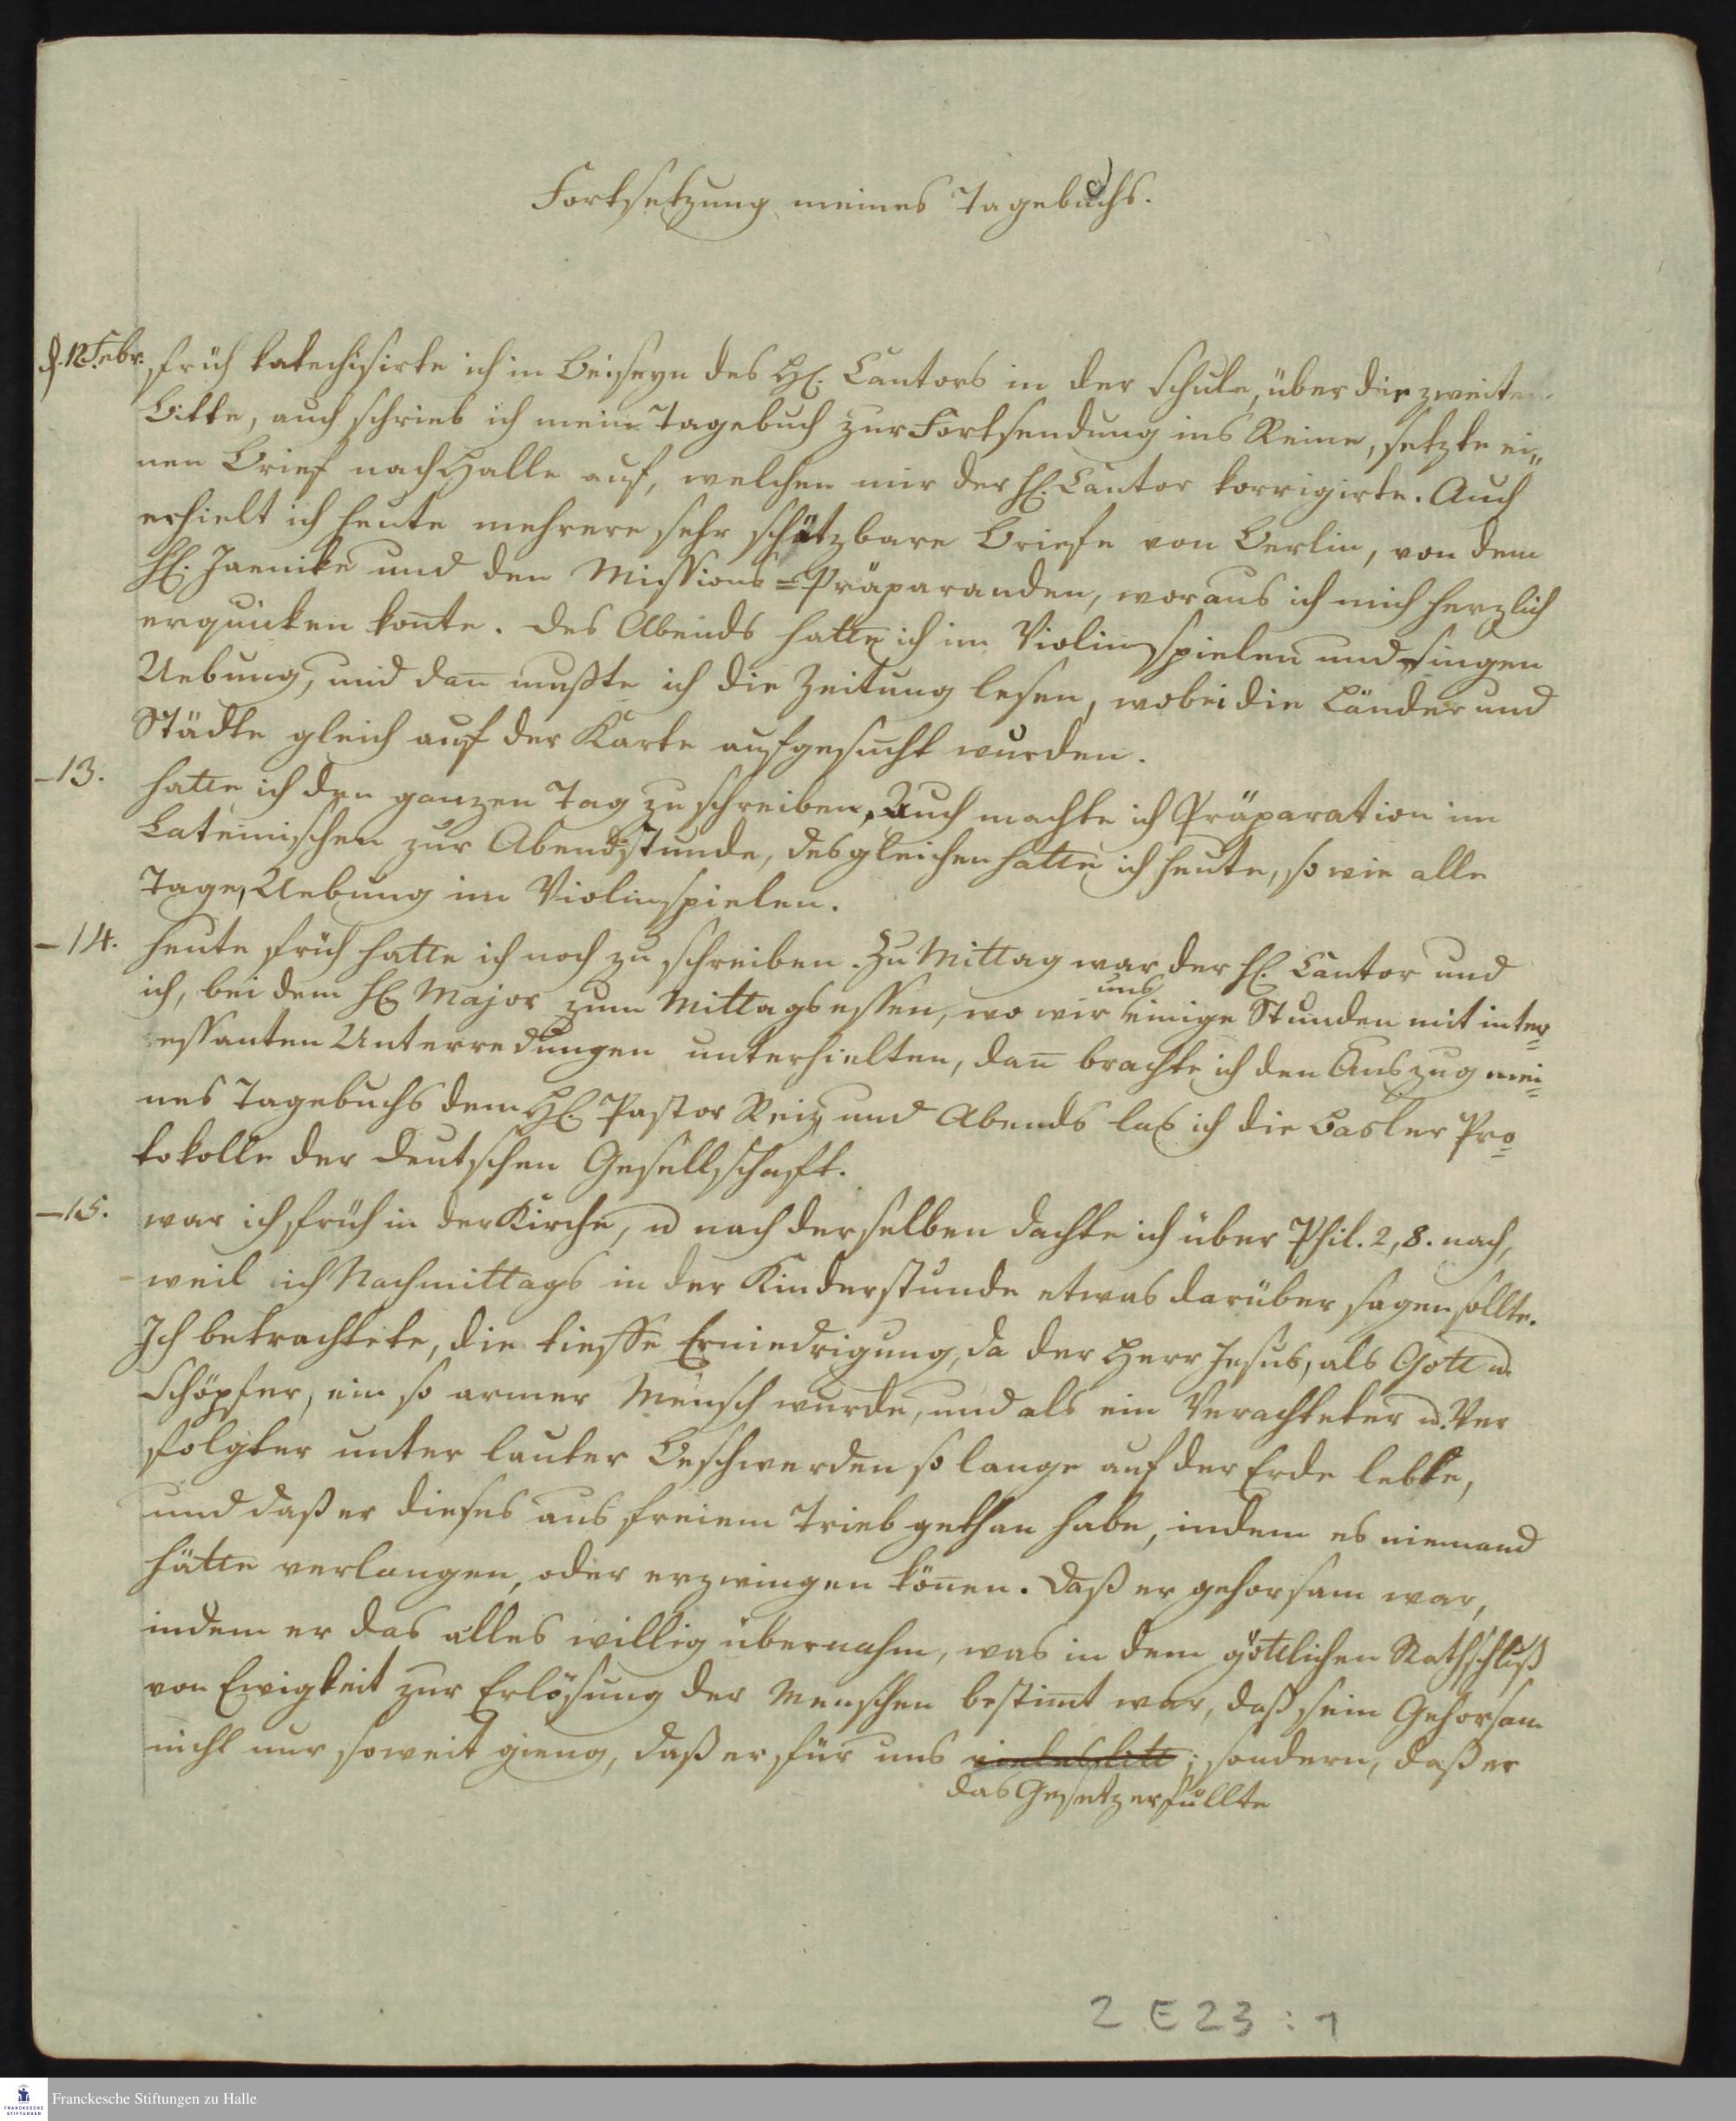 Fortsetzung meines Tagebuchs.
d. 12. Febr. früh katechisirte ich in Beiseyn des H. Cantors in der Schule, über die zweite
Bitte, auch schrieb ich mein Tagebuch zur Fortsendung ins Reine, setzte ei„
nen Brief nach Halle auf, welchen mir der H. Cantor korrigirte. Auch
erhielt ich heute mehrere sehr schätzbare Briefe von Berlin, von dem
H. Jaenike und den Missions=Präparanden, woraus ich mich herzlich
erquicken kon̄te. Des Abends hatte ich im Violinspielen und singen
Uebung, und dan̄ mußte ich die Zeitung lesen, wobei die Länder und
Städte gleich auf der Karte aufgesucht wurden.
–13. hatte ich den ganzen Tag zu schreiben, Auch machte ich Präparation im
Lateinischen zur Abendstunde, desgleichen hatte ich heute, so wie alle
Tage, Uebung im Violinspielen.
–14. heute früh hatte ich noch zu schreiben. Zu Mittag war der H. Cantor und
ich, bei dem H. Major zum Mittagsessen, wo wir uns einige Stunden mit inter=
essanten Unterredungen unterhielten, dan̄ brachte ich den Auszug mei=
nes Tagebuchs dem H. Pastor Reiz und Abends las ich die Basler Pro=
tokolle der deutschen Gesellschaft.
–15. war ich früh in der Kirche, u nach derselben dachte ich über Phil. 2, 8. nach,
weil ich Nachmittags in der Kinderstunde etwas darüber sagen sollte.
Ich betrachtete, die tieffe Erniedrigung, da der Herr Jesus, als Gott u.
Schöpfer, ein so armer Mensch wurde, und als ein Verachteter u. Ver
folgter unter lauter Beschwerden so lange auf der Erde lebte,
und daß er dieses aus freiem Trieb gethan habe, indem es niemand
hätte verlangen, oder erzwingen kön̄en. Daß er gehorsam war,
indem er das alles willig übernahm, was in dem göttlichen Rathschluß
von Ewigkeit zur Erlösung der Menschen bestim̄t war, daß sein Gehorsam
nicht nur soweit gieng, daß er für uns vieles litt; sondern, daß er
das Gesetz erfüllte
2 E 23 : 1
Franckesche Stiftungen zu Halle
FRANCKESCHE
STIFTUNGEN